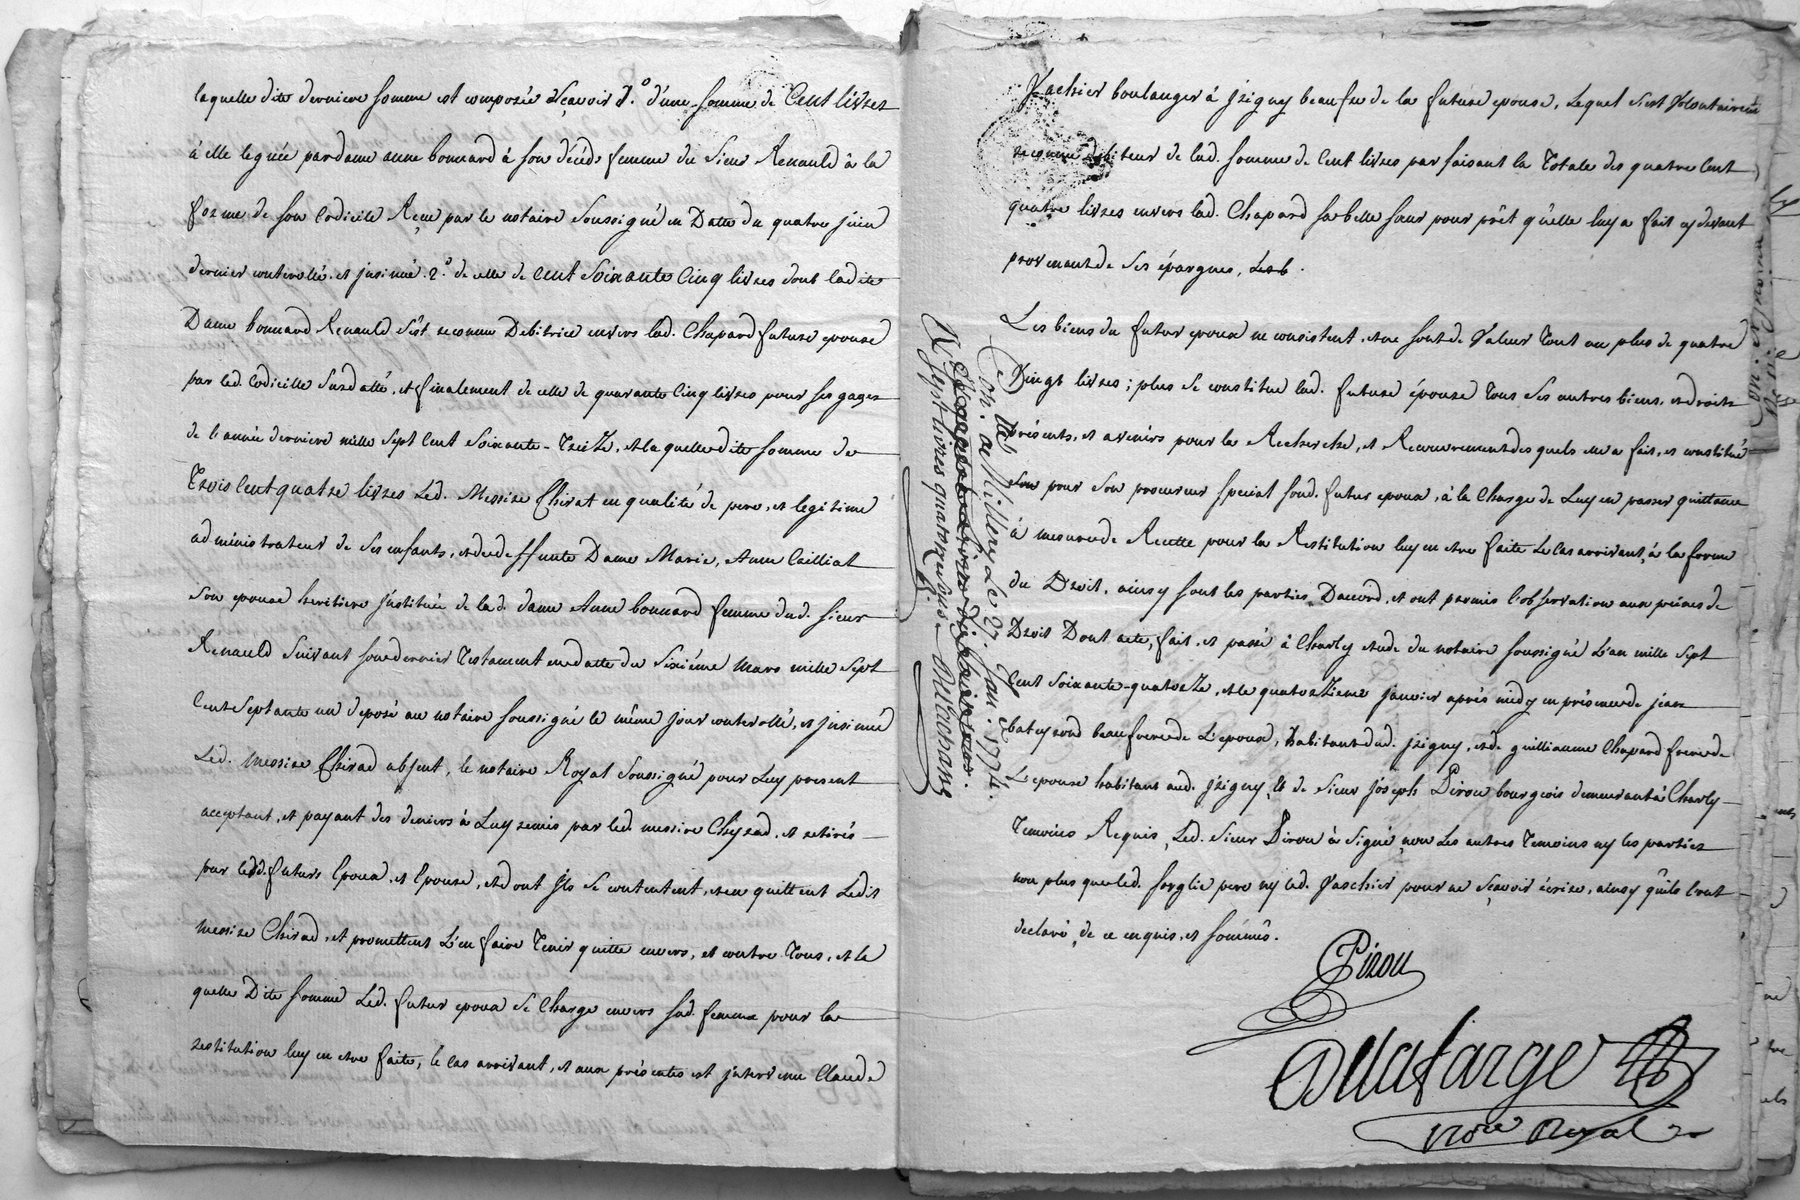 laquelle dite derniere somme est composée sçavoir 1.° d'une somme de Cent livres
à elle leguée par dame anne bonnard à son décéds femme du Sieur Renauld à la
forme de son Codicile Reçu par le notaire Soussigné en Datte du quatre juin
dernier controllé, et jnsinué. 2.° de celle de Cent Soixante Cinq livres dont ladite
Dame bonnard Renauld s'est reconnu Debitrice envers lad. Chapard future epouse
par led. Codicille Susdatté, et finalement de celle de quarante Cinq livres pour ses gages
de l'année derniere mille Sept Cent Soixante-Treize, et laquelle dite somme de
Trois Cent quatre livres Led. Messire Chirat en qualité de pere, et legitime
administrateur de Ses enfants, et de deffunte Dame Marie, Anne Cailliat
Son epouse heritiere jnstituée de lad. dame Anne bonnard femme dud. sieur
Renauld Suivant son dernier Testament en datte du Sixiéme Mars mille Sept
Cent Septante un deposé au notaire soussigné le même jour controllé, et jnsinué
Led. Messire Chirad absent, le notaire Royal Soussigné pour Luy present
acceptant, et payant des deniers à Luy remis par led messire Chirad, et retirés
par lesd. futurs Epoux, et Epouse, et dont jls se contentent, et en quittent Ledit
Messire Chirad, et promettent L'en faire Tenir quitte envers, et contre Tous, et la
quelle Dite somme Led. futur epoux se Charge envers sad. femme pour la
restitution luy en etre faite, le cas arrivant, et aux présentes est jntervenu Claude
Vachier boulanger à jrigny beaufre de la future epouse, Lequel s'est Volontairemt
reconnu débiteur de lad. somme de Cent livres parfaisant la Totale des quatre Cent
quatre livres envers lad. Chapard sa belle sœur pour prêt qu'elle luy a fait cy devant
provenant de Ses épargnes,
Les biens du futur epoux ne consistent, et ne sont de Valeur Tout au plus de quatre
Vingt livres; plus se constitue lad. future épouse Tous Ses autres biens, et droits
présents, et avenirs pour la Recherche, et Recouvrement desquels elle a fait, et constitué
Son pour Son procureur special sond. futur epoux, à la Charge de Luy en passer quittance
à mesure de Recette pour la Restitution luy en etre faite Le Cas arrivant, à la forme
du Droit, ainsy sont les parties D'accord, et ont promis l'observation aux peines de
Droit Dont acte, fait, et passé à Charly etude du notaire soussigné L'an mille Sept
Cent Soixante-quatorze, et le quatorzieme janvier après midy en présence de jean
batey rond beaufrere de L'epoux, habitant dud. jrigny, et de guilliaume Chapard frere de
L'epouse habitant aud. jrigny, et de Sieur joseph Pirou bourgeois demeurant à Charly
Temoins Requis, Led. Sieur Pirou à Signé, non Les autres Temoins ny les parties
non plus que led. forglie pere ny led. Vaschier pour ne Sçavoir écrire, ainsy qu'ils l'ont
declaré, de ce enquis, et sommés.
Pirou
Delafarge
Nore Royal
Con. à Millery Le 27. Jan. 1774.
Sept Livres quatorze sous.